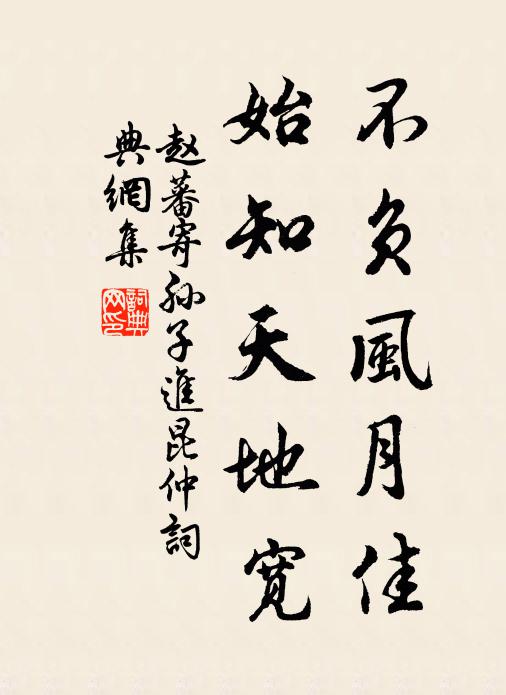 不負風月佳
始知天地寬
赵蕃寄孙子進昆仲詞
典網集
詞典网印